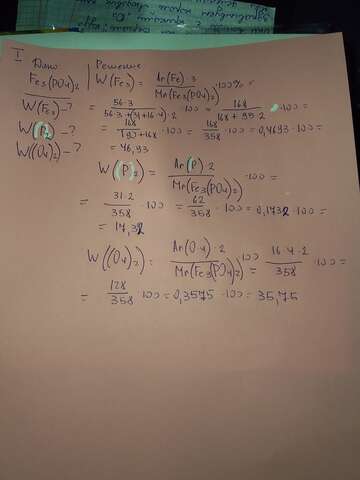 I Дано | Решение
Fe3(PO4)2 | W(Fe3) = Ar(Fe)·3 / Mr(Fe3(PO4)2) ·100% =
W(Fe3)-? = 56·3 / 56·3+(31+16·4)·2 ·100 = 168 / 168+95·2 ·100 =
W(P2)-? = 168 / 190+168 ·100 = 168/358 ·100 = 0,4693·100 =
W((O4)2)-? = 46,93
W(P)2) = Ar(P)·2 / Mr(Fe3(PO4)2) ·100 =
= 31·2 / 358 ·100 = 62/358 ·100 = 0,1732·100 =
= 17,32
W((O4)2) = Ar(O4)·2 / Mr(Fe3(PO4)2) ·100 = 16·4·2 / 358 ·100 =
= 128/358 ·100 = 0,3575·100 = 35,75